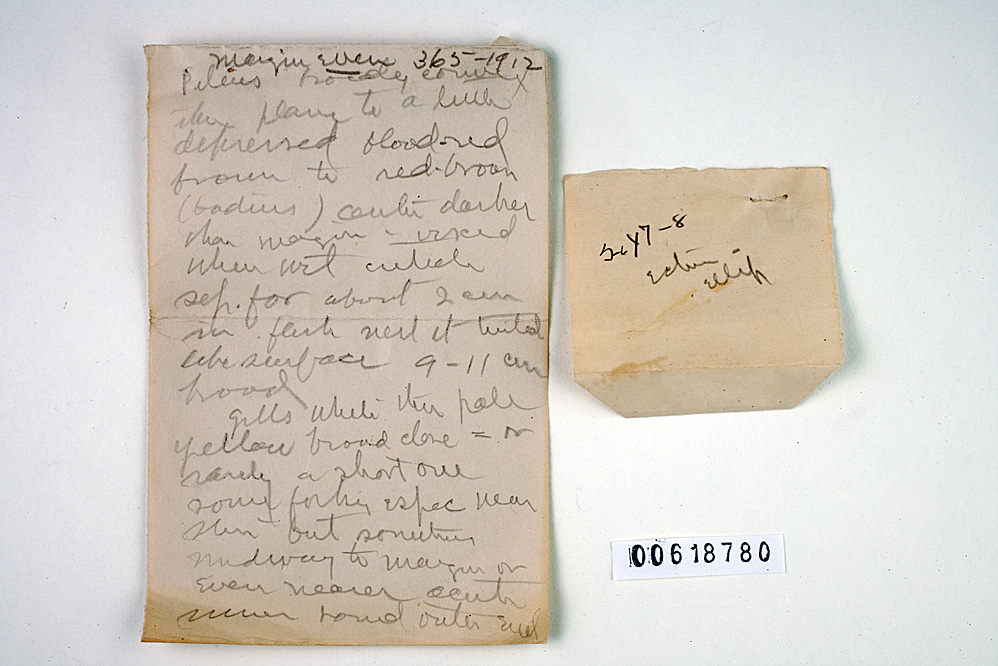 margin even 365-1912
Pileus broadly convex
then plane to a little
depressed blood-red
brown to red-brown
(badius) center darker
than margin - viscid
when wet cuticle
sep. for about 2 cm
in flesh next it tinted
like surface 9-11 cm
broad
Gills white then pale
yellow broad close = or
rarely a short one
some forking espec near
stem but sometimes
midway to margin or
even nearer acute
inner round outer end
7-8
echin
ellip
00618780